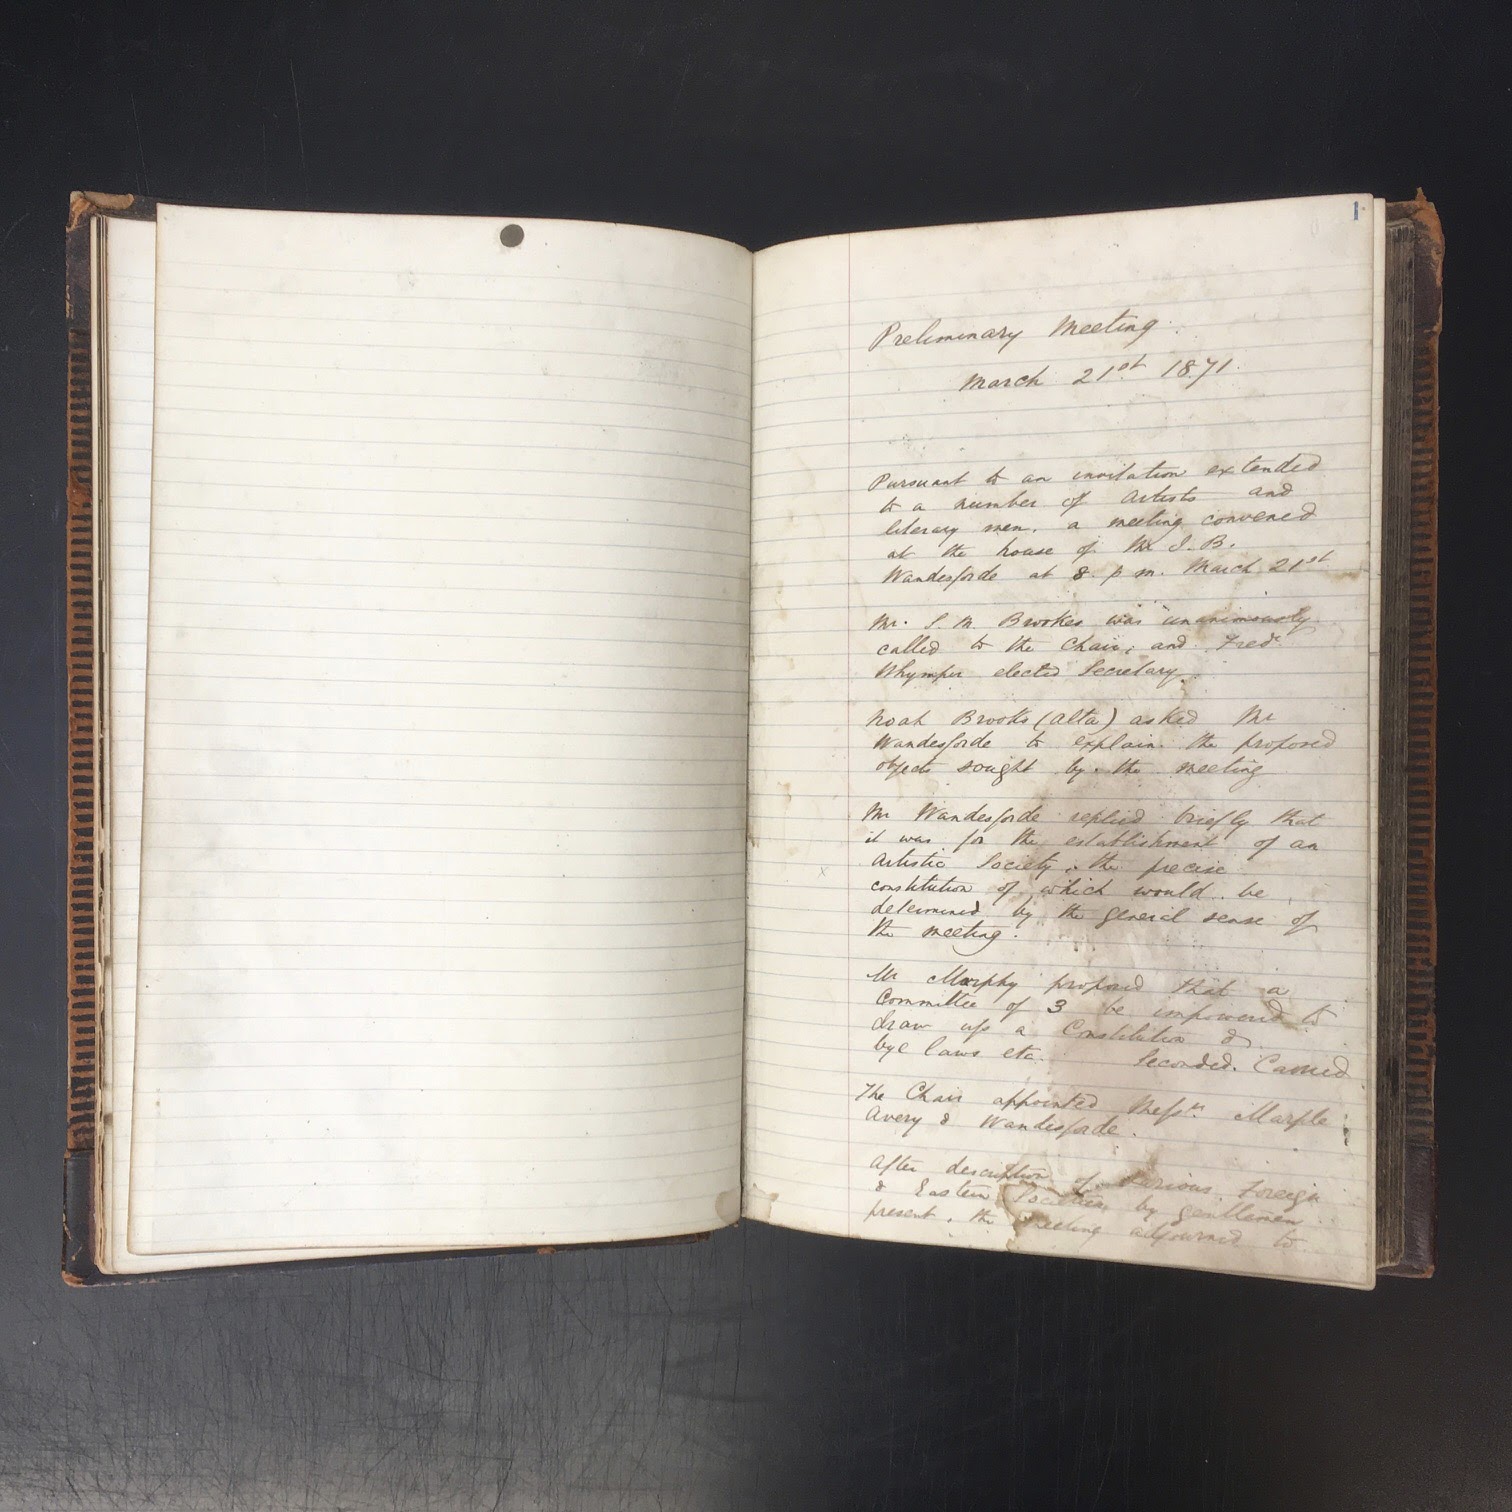 1
Preliminary Meeting.
March 21st 1871.
Pursuant to an invitation extended
to a number of Artists and
literary men, a meeting convened
at the house of Mr J. B.
Wandesforde at 8. p m. March 21st
Mr. S. M. Brookes was unanimously
called to the Chair, and Fredc
Whymper elected Secretary.
Noah Brooks (Alta) asked Mr
Wandesforde to explain the proposed
objects sought by the meeting
Mr Wandesforde replied briefly that
it was for the establishment of an
Artistic Society, the precise
x
constitution of which would be
determined by the general sense of
the meeting.
Mr Murphy proposed that a
Committee of 3 be impowered to
draw up a Constitution &
bye laws etc. Seconded. Carried
The Chair appointed Messrs Marple
Avery & Wandesforde.
After description of various Foreign
& Eastern Societies, by gentlemen
present, the meeting adjourned to